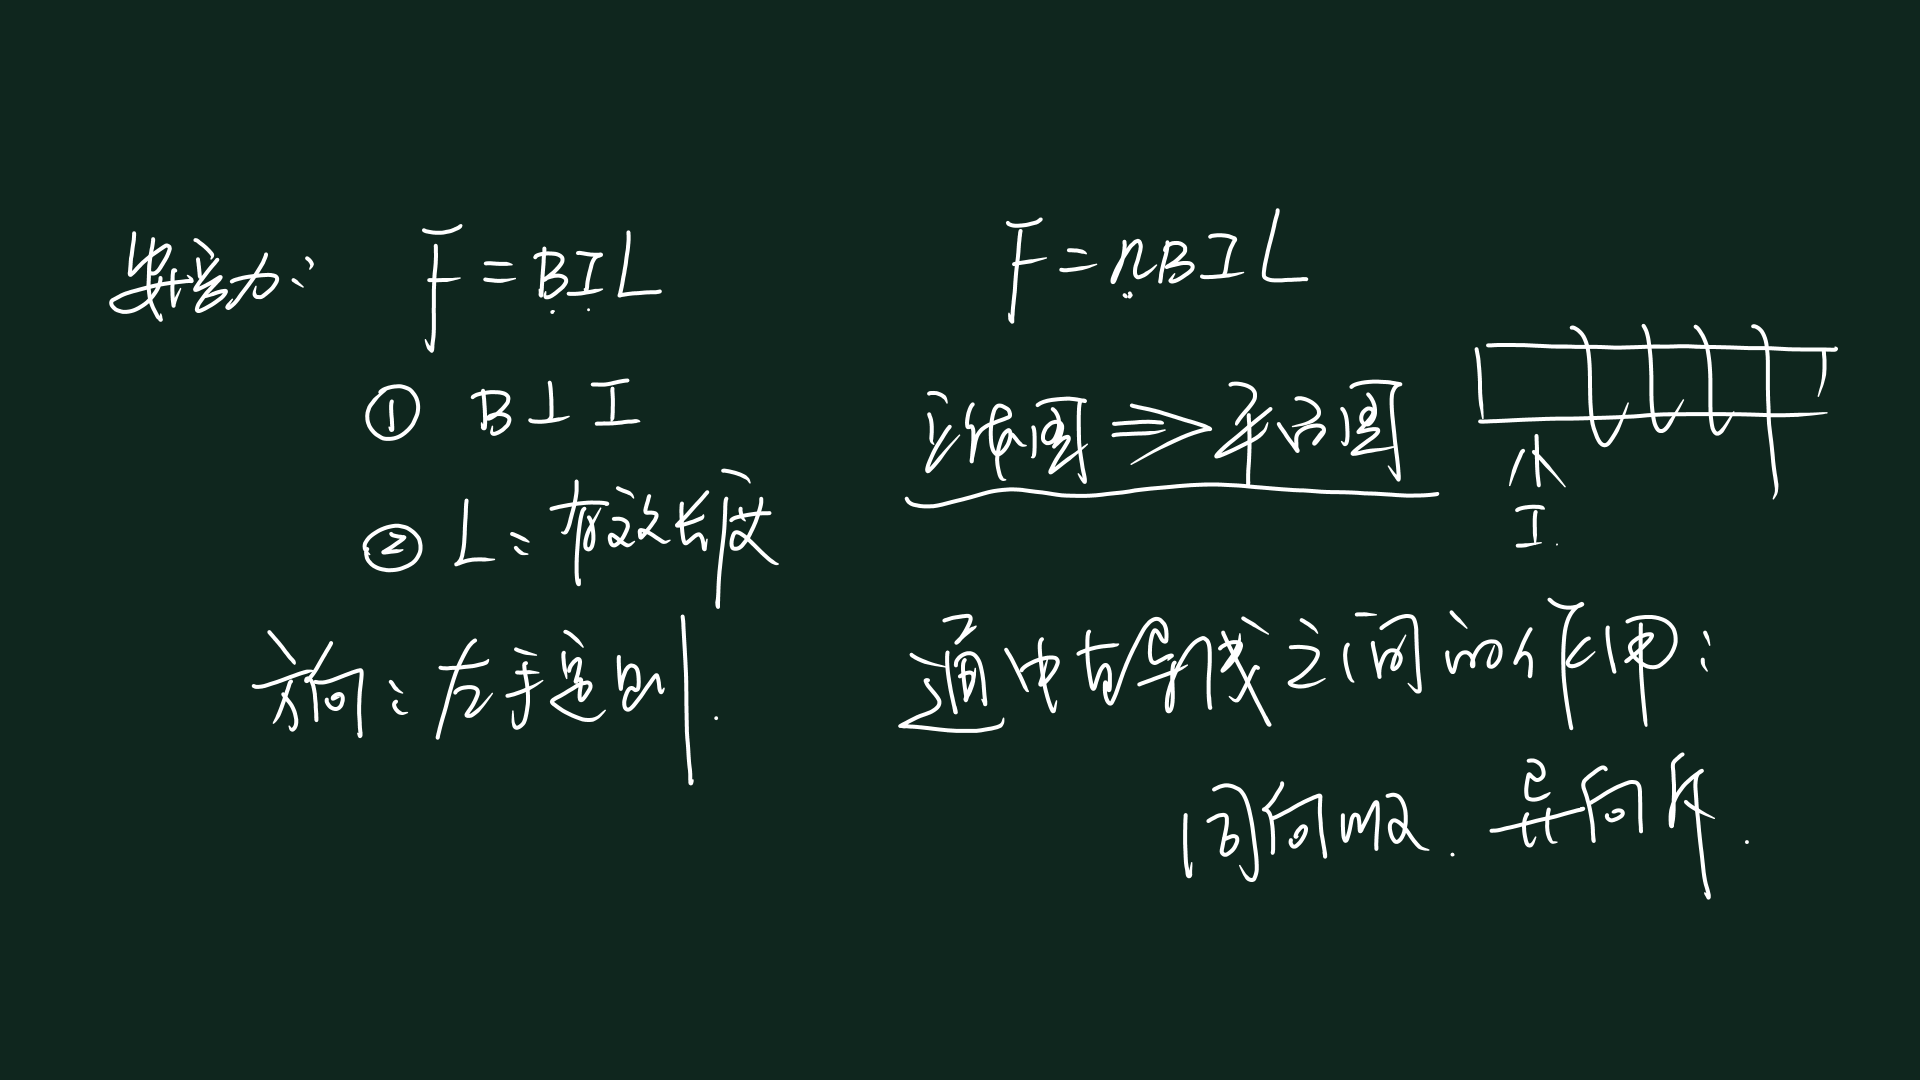 安培力： F=BIL
① B⊥I
② L：有效长度
方向：左手定则.
F=nBIL
立体图⇒平面图
I.
通电直导线之间的作用：
同向吸. 异向斥.